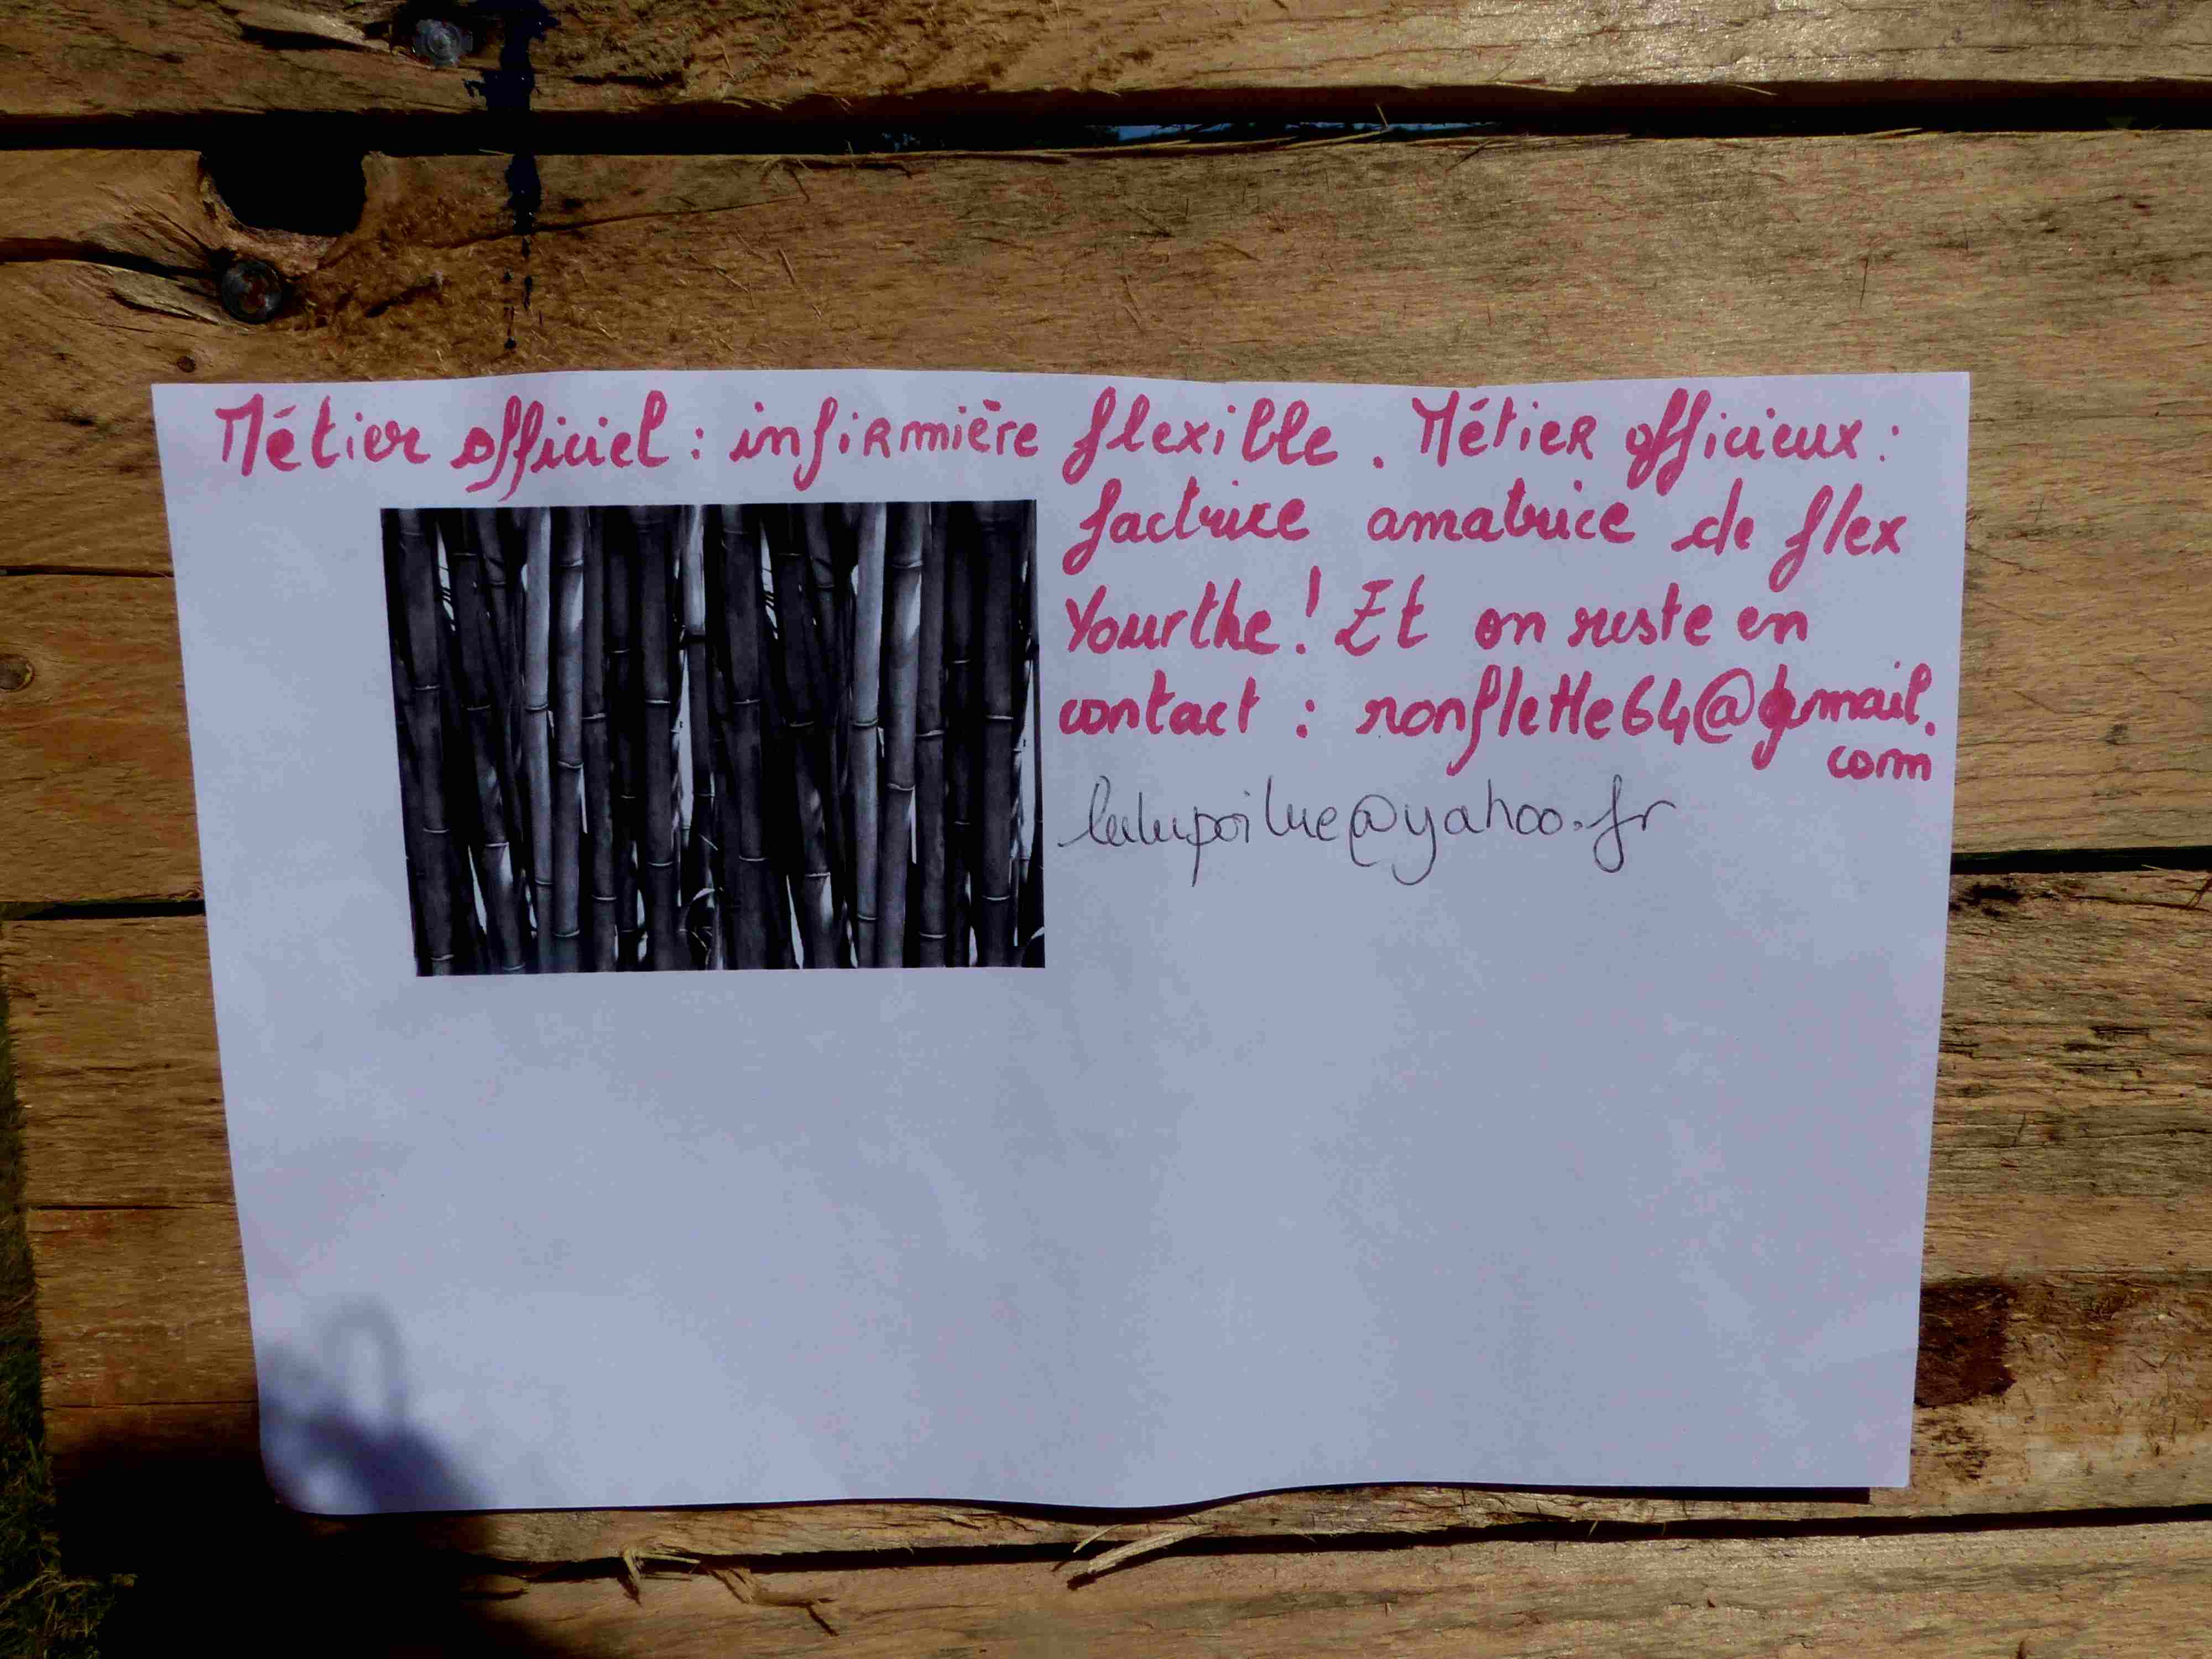 Métier officiel : infirmière flexible. Métier officieux :
factrice amatrice de flex
Yourthe! Et on reste en
contact : ronflette64@gmail.
com
lulupoilue@yahoo.fr